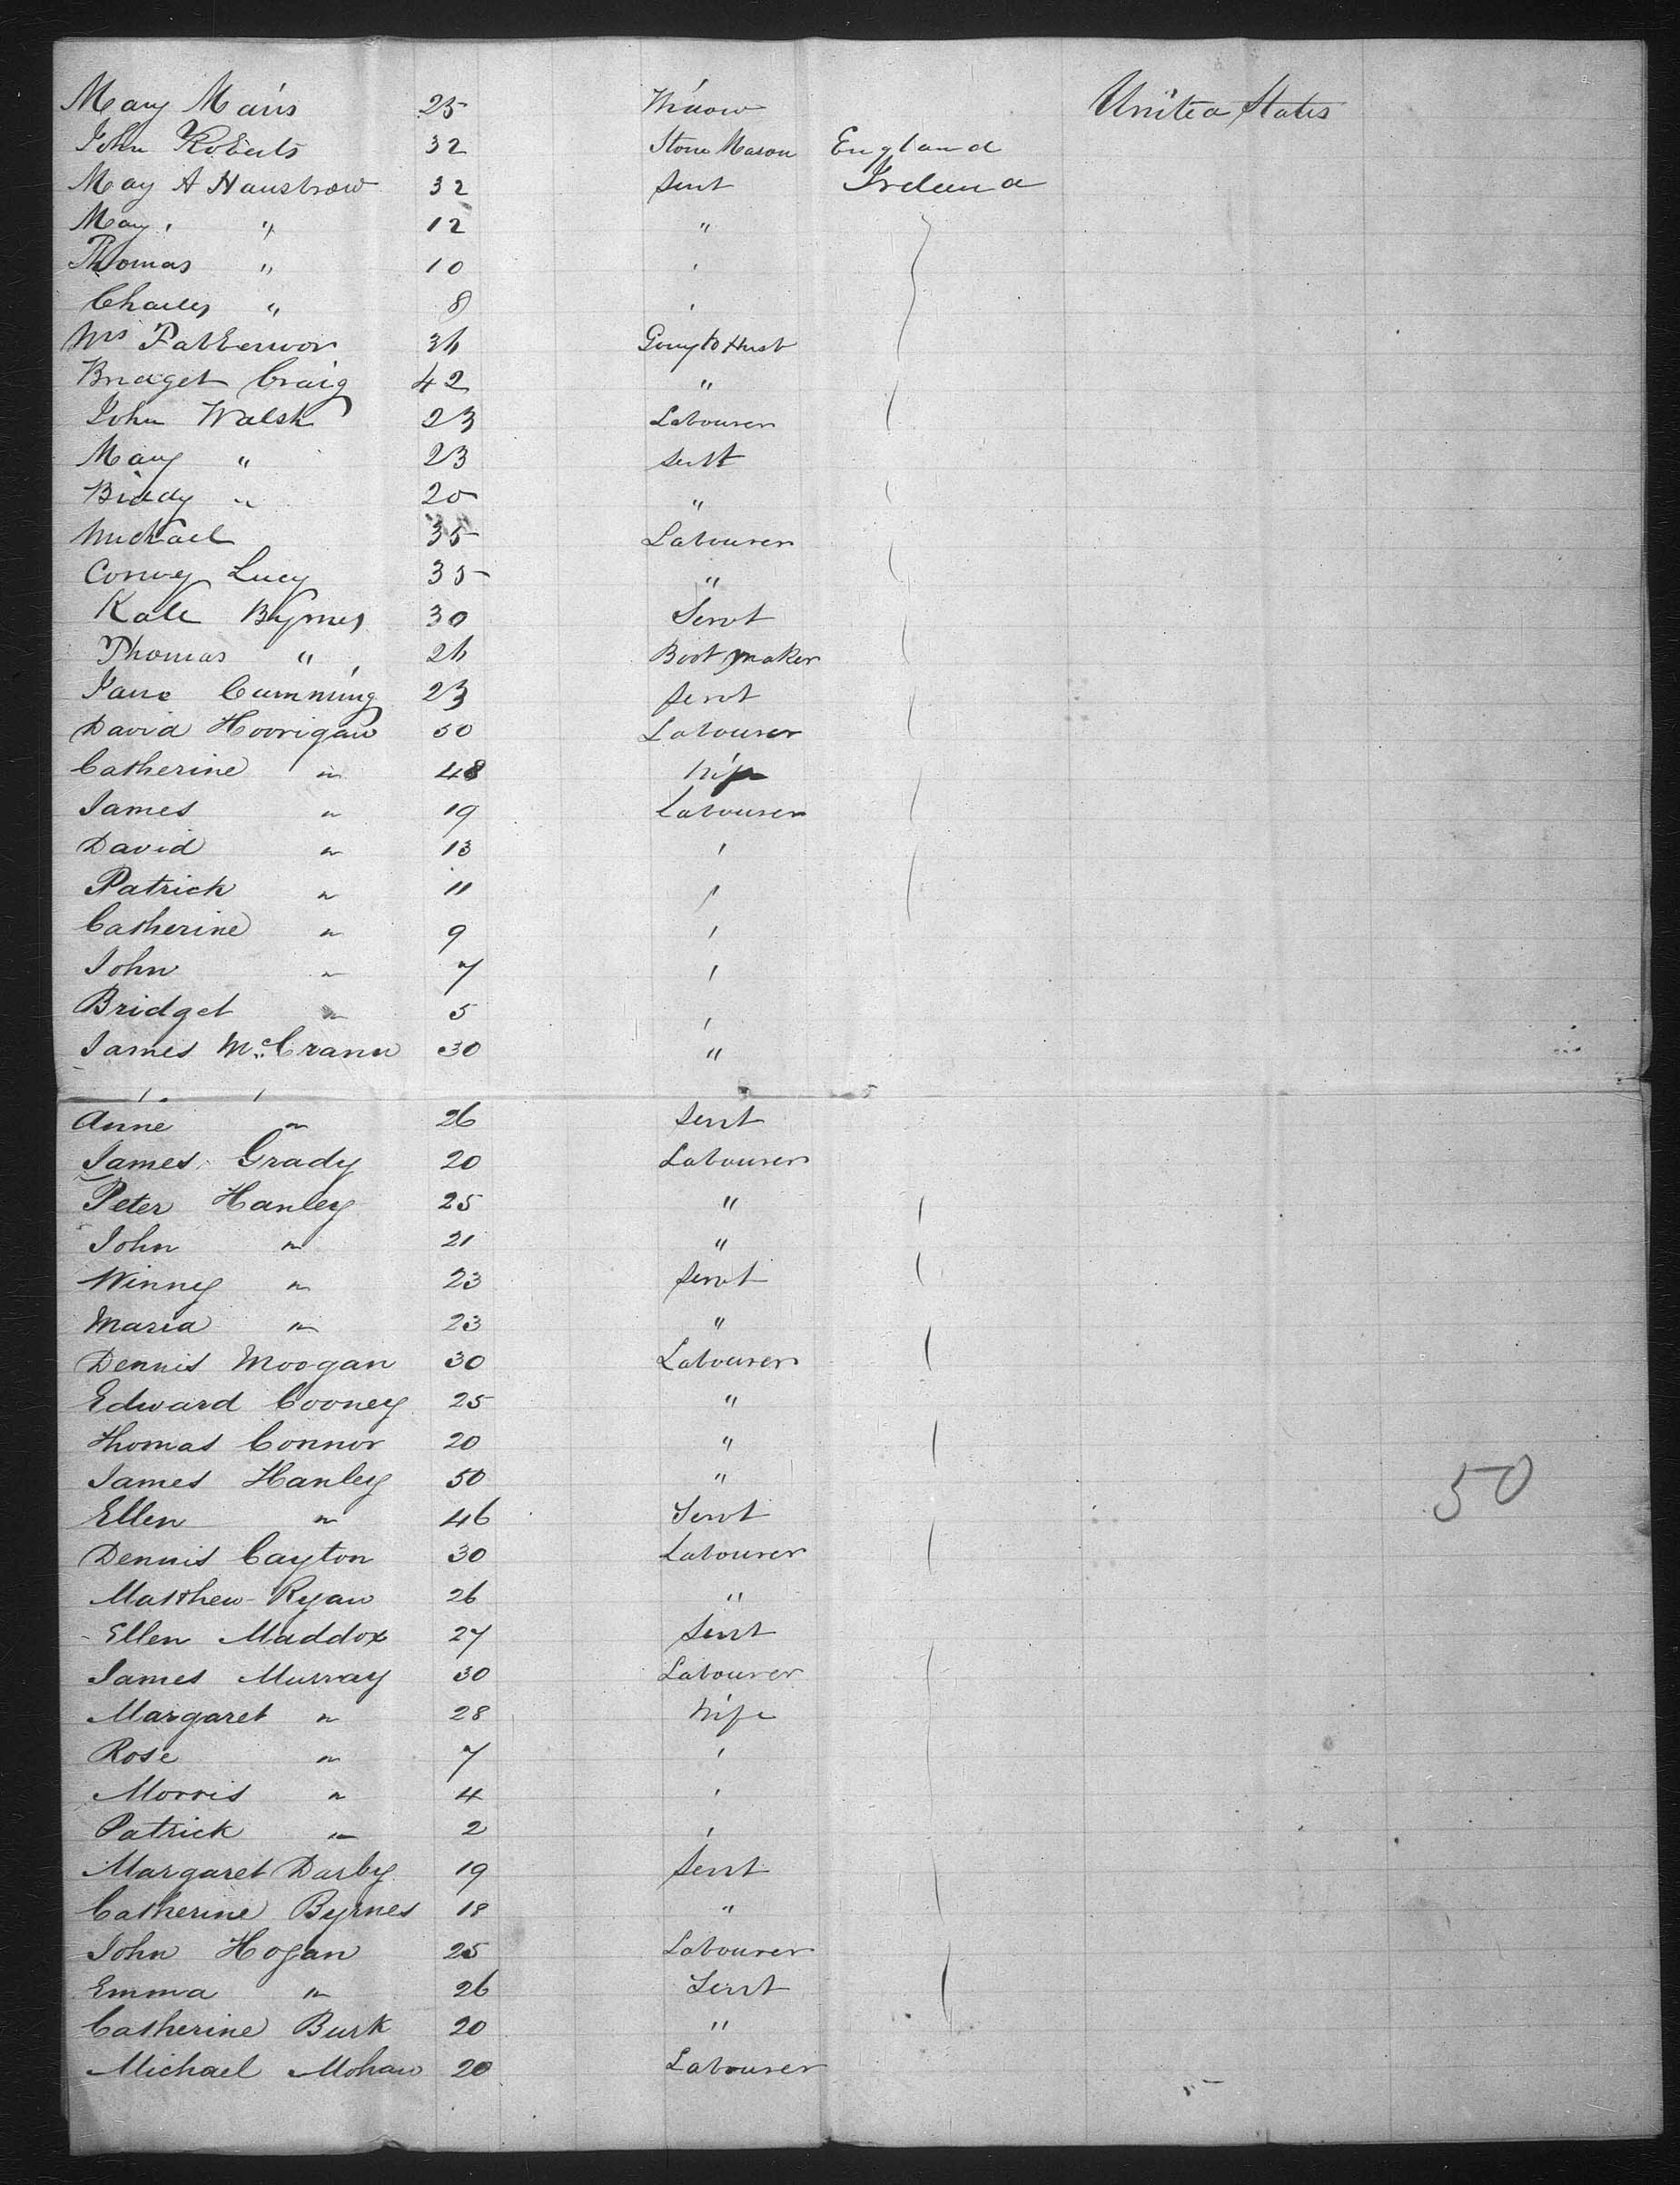 Mary Mairs 25 Widow United States
John Roberts 32 Stone Mason England
May A Hanstrow 32 Servt Ireland
May " 12 "
Thomas " 10 '
Charles " 8 '
Mrs 36 Going to Husb
Bridget Craig 42 "
John Walsh 23 Labourer
Mary " 23 Servt
Biddy " 20 "
Michael 35 Labourer
Lucy 35 "
Kate Byrnes 30 Servt
Thomas " 26 Boot maker
Jane Cumming 23 Servt
David Hoorigan 50 Labourer
Catherine " 48 Wife
James " 19 Labourer
David " 13 '
Patrick " 11 '
Catherine " 9 '
John " 7 '
Bridget " 5 '
James McCrann 30 "
Anne " 26 Servt
James Grady 20 Labourer
Peter Hanley 25 "
John " 21 "
Winney " 23 Servt
Maria " 23 "
Dennis Moogan 30 Labourer
Edward Cooney 25 "
Thomas Connor 20 "
James Hanley 50 "
50
Ellen " 46 Servt
Dennis Cayton 30 Labourer
Matthew Ryan 26 "
Ellen Maddox 27 Servt
James Murray 30 Labourer
Margaret " 28 Wife
Rose " 7 '
Morris " 4 '
Patrick " 2 '
Margaret Darby 19 Servt
Catherine Byrnes 18 "
John Hogan 25 Labourer
Emma " 26 Servt
Catherine Burk 20 "
Michael Mohan 20 Labourer